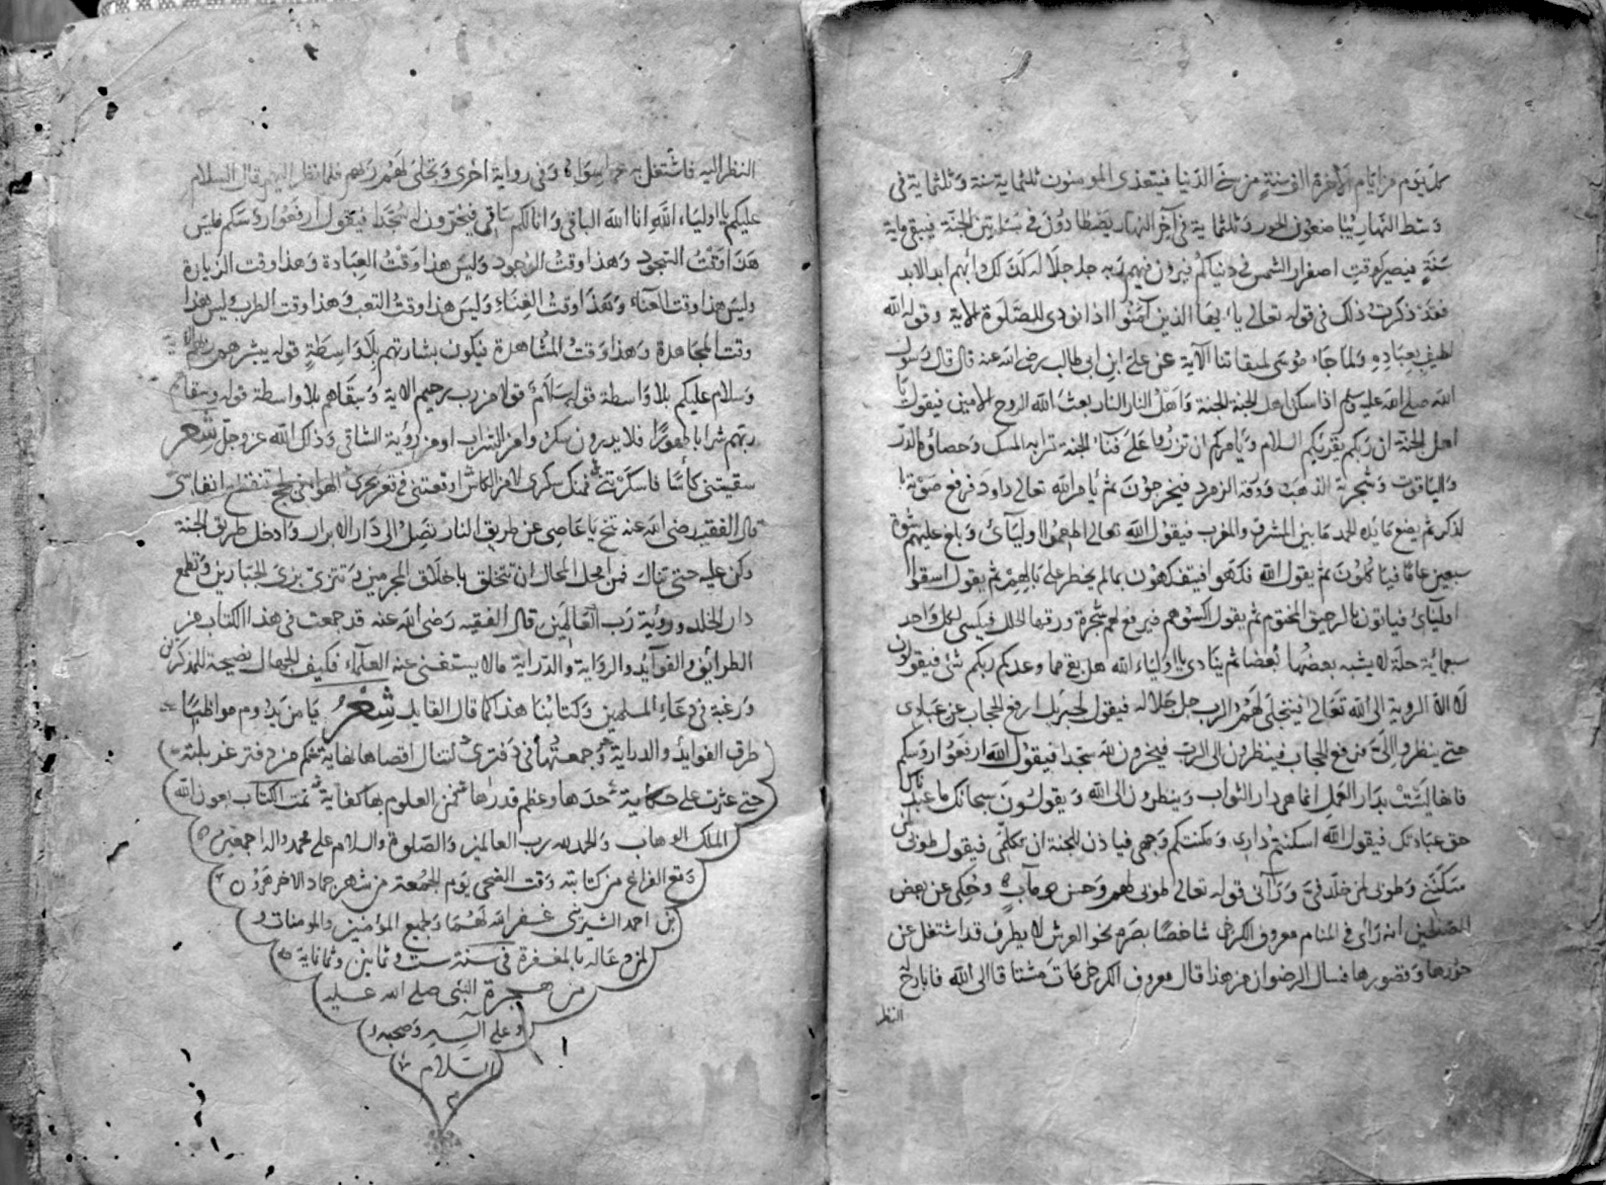 كل يوم من ايام الآخرة الف سنة من سني الدنيا فيتغذى المومنون ثلثماية سنة وثلثماية في
وسط النهار يضاجعون الحور وثلثماية في آخر النهار يصطادون في بساتين الجنة فيبقى ماية
سنة فيصير كوقت اصفرار الشمس في دنياكم فيرون فيهم ربهم جل جلاله كذلك لدابهم ابد الابد
فقد ذكرت ذلك في قوله تعالى يا ايها الذين آمنوا اذا نودي للصلوة الاية وقوله الله
لطيف بعباده ولما جاء موسى لميقاتنا الآية عن علي ابن ابي طالب رضي الله عنه قال قال رسول
الله صلى الله عليه وسلم اذا سكن اهل الجنة الجنة واهل النار النار بعث الله الروح الامين فيقول يا
اهل الجنة ان ربكم يقريكم السلام ويامركم ان تزروا على فناء الجنة ترابه المسك وحصاؤه الدر
والياقوت وشجرية الذهب وورقه الزمرد فيخرجون ثم يأمر الله تعالى داود فرفع صوته با
لذكر ثم يضع مائدة الحمد ما بين المشرق والمغرب فيقول الله تعالى اطعموا اوليآئ وبلغ عليهم شوق
سبعين عاما فياكلون ثم يقول الله فكهوا فيتفكهون بما لم يخطر على بالهم ثم يقول اسقوا
اوليائ فياتون بالرحيق المختوم ثم يقول اكسوهم فيرفع لهم شجرة ورقها الحلل فيكسى لكل واحد
سبعماية حلة لا يشبه بعضها بعضا ثم ينادي يا اولياء الله هل بقي مما وعدكم ربكم شئ فيقولون
لا الا الروية الى الله تعالى فيتجلى لهم الرب جل جلاله فيقول لجبريل ارفع الحجاب عن عبادي
حتى ينظروا الي فرفع الحجاب فينظرون الى الرب فيخرون لله سجدا فيقول الله ارفعوا رؤسكم
فانها ليست بدار العمل انما هي دار الثواب وينظرون الى الله ويقولون سبحانك ما عبدناك
حق عبادتك فيقول الله اسكنتكم داري ومكنتكم وجهي فياذن للجنة ان تكلمي فيقول طوبى لمن
سكنني وطوبى لمن خلد في ورآني قوله تعالى طوبى لهم وحسن مآب وحكي عن بعض
الصالحين انه رأى في المنام معروف الكرخي شاخصا بصره نحو العرش لا يطرف قد اشتغل عن
حورها وقصورها فسال الرضوان من هذا قال معروف الكرخي مات مشتاقا الى الله فاباح له
النظر
النظر اليه فاشتغل به عما سواه وفي رواية اخرى وتجلى لهم ربهم فلما نظر اليهم قال السلام
عليكم يا اولياء الله انا الله الباقي وانا لكم ساقي فيخرون له سجدا فيقول ارفعوا رؤسكم فليس
هذا وقت السجود وهذا وقت الوجود وليس هذا وقت العبادة وهذا وقت الزيارة
وليس هذا وقت العناء وهذا وقت الغناء وليس هذا وقت التعب وهذا وقت الطرب وليس هذا
وقت المجاهدة وهذا وقت المشاهدة فيكون بشارتهم بلا واسطة قوله يبشرهم ربهم الاية
وسلام عليكم بلا واسطة قوله سلام قولا من رب رحيم الاية وسقاهم بلا واسطة قوله وسقاهم
ربهم شرابا طهورا فلا يدرون سكروا من الشراب او من رؤية الساقي وذلك الله عز وجل شعر
سقيتني كأسا فاسكرتني فمنك سكري لا من الكاس اوقعتني في قعر بحر الهوى
قال الفقيه رضي الله عنه تنح يا عاصي عن طريق النار تصل الى دار الابرار وادخل طريق الجنة
وكن عليه حتى تناك فمن امحل المحال ان تتخلق باخلاق المجرمين وتتزي بزي الجبارين وتطمع
دار الخلد ورؤية رب العالمين قال الفقيه رضي الله عنه قد جمعت في هذا الكتاب من
الطرائق والفوآئد والرواية والدراية مالا يستغني عنه العلماء فكيف الجهال نصيحة للمذكرين
ورغبة في دعاء المسلمين وكتابنا هذا كما قال القايل شعر يا من يدوم مواظبا
طرف الفوايد والدراية وجمعتها في دفتري لتنال اقصاها نهاية كم من دفتر غربلته
حتى عثرت على حكاية خذها وعظم قدرها فمن العلوم بها كفاية تمت الكتاب بعون الله
الملك الوهاب والحمد لله رب العالمين والصلوة والسلام على محمد واله اجمعين
وقع الفراغ من كتابته وقت الضحى يوم الجمعة من شهر جماد الاخر هرون
بن احمد غفر الله لهما ولجميع المؤمنين والمومنات و
لمن دعا له بالمغفرة في سنة ست وثمانين وثمانماية
من هجرة النبي صلى الله عليه
وعلى اله وصحبه و
السلام
م